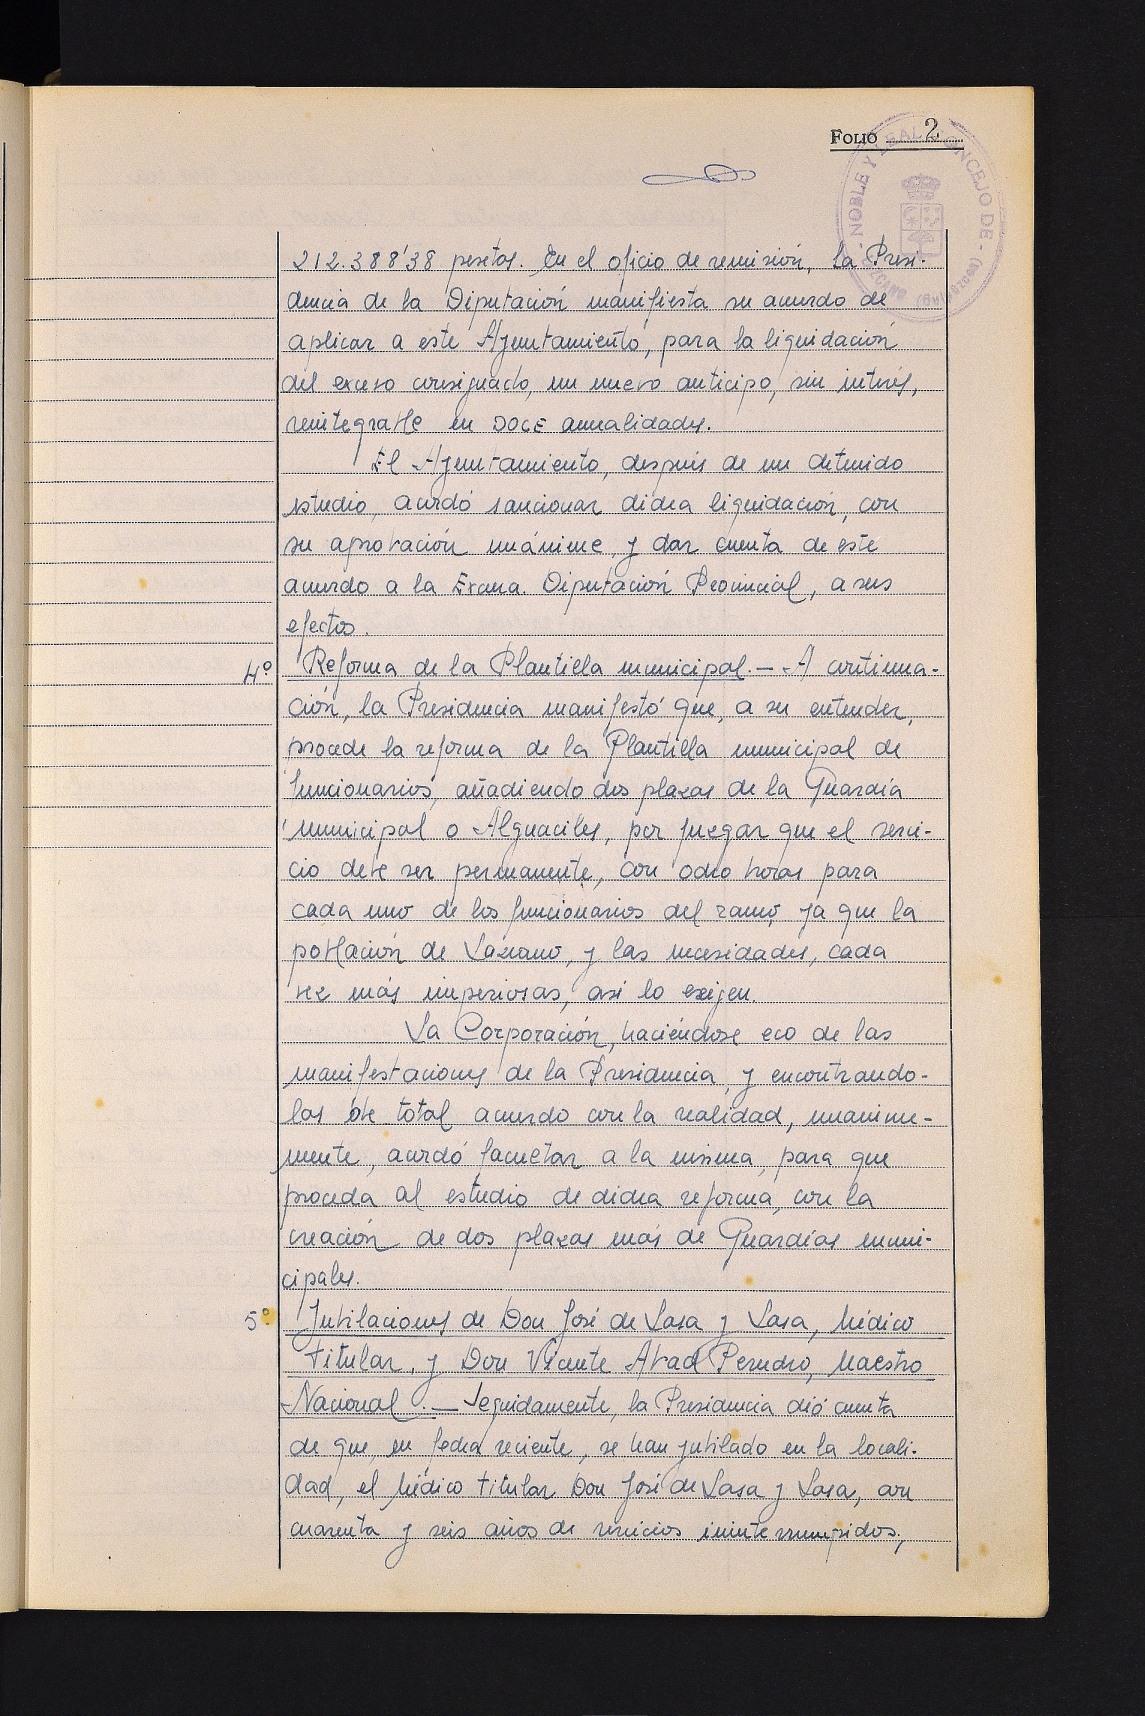 FOLIO 2
NOBLE Y LEAL CONCEJO DE - LAZCANO (Guipuzcoa) -
212.388'38 pesetas. En el oficio de remisión, la Presi-
dencia de la Diputación manifiesta su acuerdo de
aplicar a este Ayuntamiento, para la liquidación
del exceso consignado, un nuevo anticipo, sin interés,
reintegrable en DOCE anualidades.
El Ayuntamiento, después de un detenido
estudio, acordó sancionar dicha liquidación, con
su aprobación unánime, y dar cuenta de este
acuerdo a la Excma. Diputación Provincial, a sus
efectos.
4º Reforma de la Plantilla municipal.- A continua-
ción, la Presidencia manifestó que, a su entender,
procede la reforma de la Plantilla municipal de
funcionarios, añadiendo dos plazas de la Guardia
municipal o Alguaciles, por juzgar que el servi-
cio debe ser permanente, con ocho horas para
cada uno de los funcionarios del ramo, ya que la
población de Lazcano, y las necesidades, cada
vez más imperiosas, así lo exigen.
La Corporación, haciéndose eco de las
manifestaciones de la Presidencia, y encontrando-
las de total acuerdo con la realidad, unánime-
mente, acordó facultar a la misma, para que
proceda al estudio de dicha reforma, con la
creación de dos plazas más de Guardias muni-
cipales.
5º Jubilaciones de Don José de Lasa y Lasa, Médico
titular, y Don Vicente Abad Perucho, Maestro
Nacional.- Seguidamente, la Presidencia dió cuenta
de que, en fecha reciente, se han jubilado en la locali-
dad, el Médico titular Don José de Lasa y Lasa, con
cuarenta y seis años de servicios ininterrumpidos,